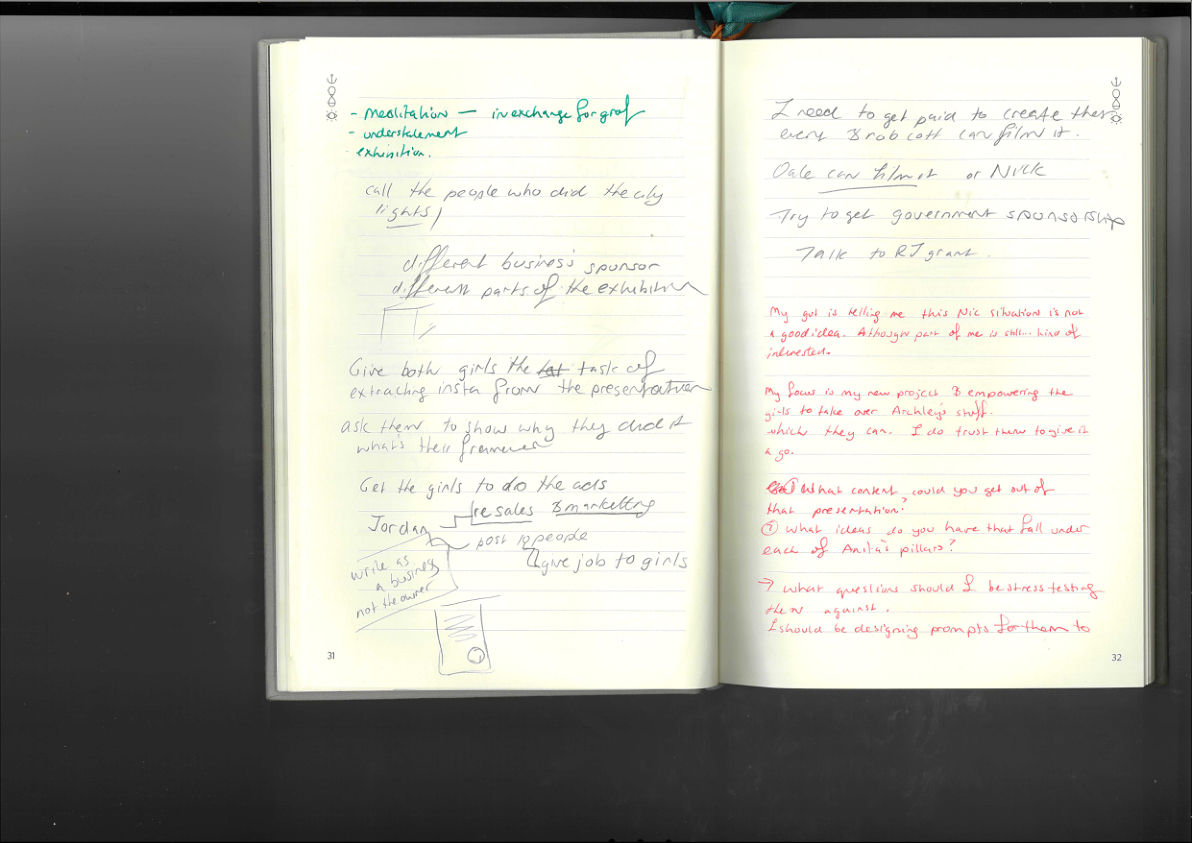 - meditation — in exchange for graf
- understatement
- exhibition.
call the people who did the city
lights
different business's sponsor
different parts of the exhibition
Give both girls the task of
extracting insta from the presentation
ask them to show why they did it
what's their
Get the girls to do the ads
Jordan re sales & marketing
post 12 people
give job to girls
write as
a business
not the owner
31
I need to get paid to create these
every & rob cott can film it.
Dale can film it or Nick
Try to get government sponsorship
Talk to RJ grant.
My gut is telling me this Nic situation is not
a good idea. Although part of me is still... kind of
interested.
My focus is my new project & empowering the
girls to take over Archley's stuff.
which they can. I do trust them to give it
a go.
① What content could you get out of
that presentation?
② what ideas do you have that fall under
each of Anita's pillars?
→ what questions should I be stress testing
them against.
I should be designing prompts for them to
32